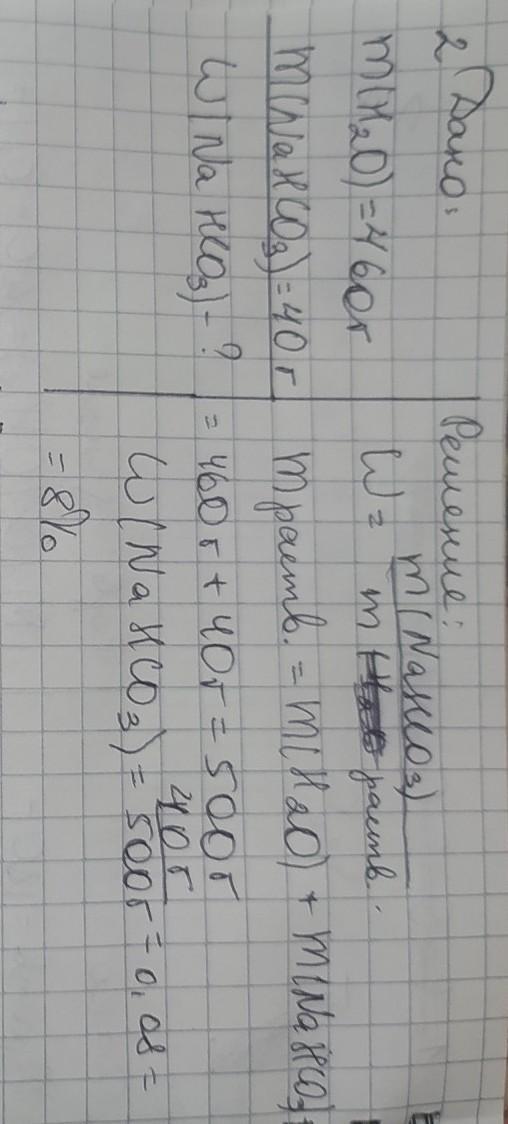 2 Дано:
m(H₂O)=460г
m(NaHCO₃)=40г
W(NaHCO₃)-?
Решение:
W = m(NaHCO₃)
m раств.
m раств. = m(H₂O) + m(NaHCO₃)=
= 460г + 40г = 500г
W(NaHCO₃) = 40г
500г = 0,08 =
= 8%